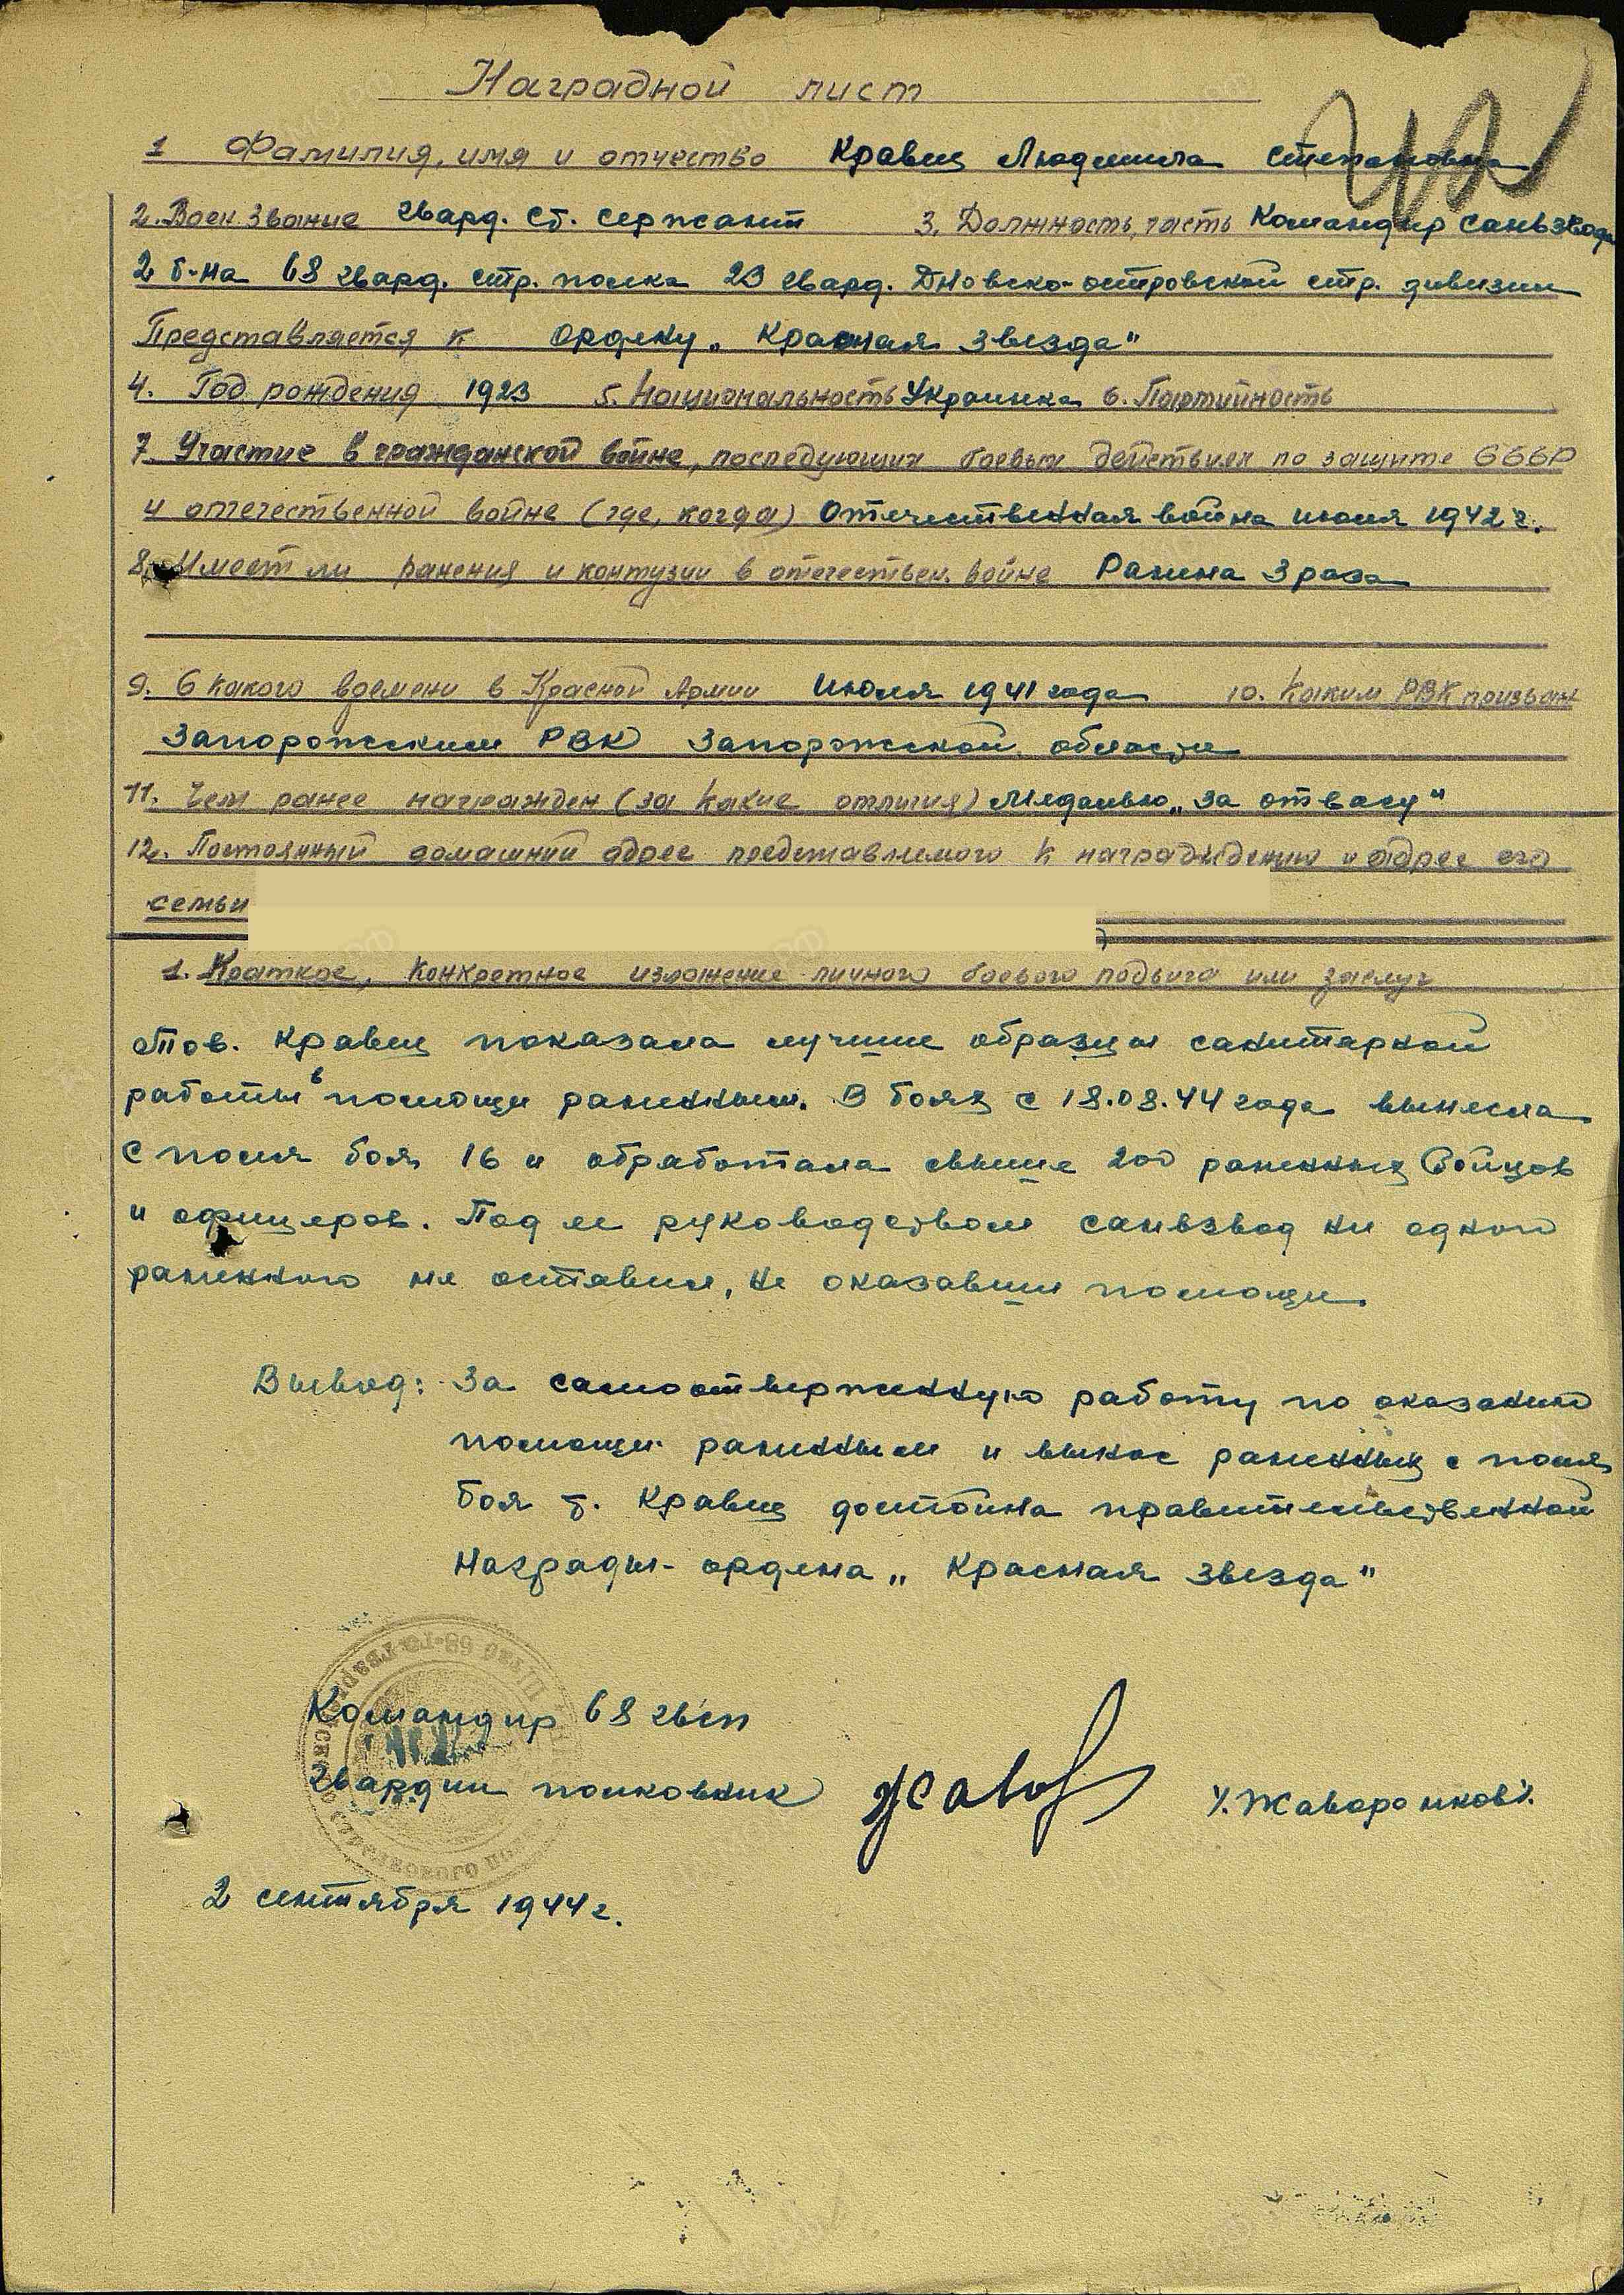 Наградной лист
1 Фамилия, имя и отчество Кравец Людмила Степановна
2. Воен. звание гвард. ст. сержант 3. Должность, часть Командир санвзвода
2 б-на 68 гвард. стр. полка 23 гвард. Дновско-островской стр. дивизии
Представляется к ордену „Красная звезда"
4. Год рождения 1923 5. Национальность Украинка 6. Партийность
7. Участие в гражданской войне, последующих боевых действиях по защите СССР
и отечественной войне (где, когда) Отечественная война июля 1942 г.
8. Имеет ли ранения и контузии в отечествен. войне Ранена 3 раза
9. С какого времени в Красной Армии Июля 1941 года 10. Каким РВК призван
Запорожским РВК Запорожской области
11. Чем ранее награжден (за какие отличия) Медалью „за отвагу"
12. Постоянный домашний адрес представляемого к награждению и адрес его
семьи
1. Краткое, конкретное изложение личного боевого подвига или заслуг
Тов. Кравец показала лучшие образцы санитарной
работы в помощи раненным. В боях с 18.08.44 года вынесла
с поля боя 16 и обработала свыше 200 раненных бойцов
и офицеров. Под ее руководством санвзвод ни одного
раненного не оставил, не оказавши помощи.
Вывод: За самоотверженную работу по оказанию
помощи раненным и вынос раненных с поля
боя т. Кравец достойна правительственной
награды - ордена „Красная звезда"
Командир 68 гвсп
Гвардии полковник Жаво /Жаворонков/.
2 сентября 1944 г.